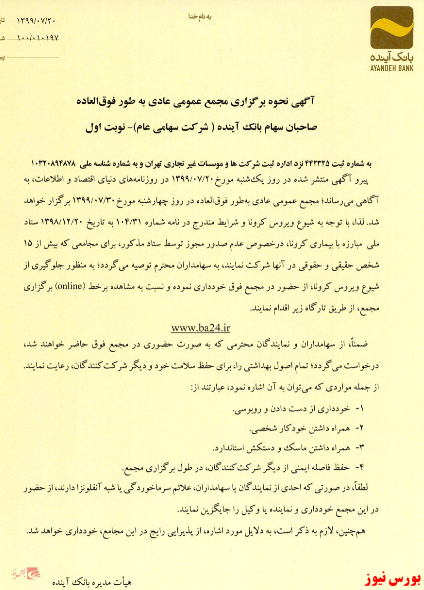 به نام خدا
۱۳۹۹/۰۷/۲۰
۱۰۰/۰۱۰۱۹۷
بانک آینده
AYANDEH BANK
آگهی نحوه برگزاری مجمع عمومی عادی به طور فوق‌العاده
صاحبان سهام بانک آینده ( شرکت سهامی عام)- نوبت اول
به شماره ثبت ۴۴۲۳۲۵ نزد اداره ثبت شرکت ها و موسسات غیر تجاری تهران و به شماره شناسه ملی ۱۰۳۲۰۸۹۴۸۷۸
پیرو آگهی منتشر شده در روز یک‌شنبه مورخ ۱۳۹۹/۰۷/۲۰ در روزنامه‌های دنیای اقتصاد و اطلاعات، به
آگاهی می‌رساند؛ مجمع عمومی عادی به‌طور فوق‌العاده در روز چهارشنبه مورخ ۱۳۹۹/۰۷/۳۰ برگزار خواهد
شد. لذا، با توجه به شیوع ویروس کرونا و شرایط مندرج در نامه شماره ۱۰۴/۳۱ به تاریخ ۱۳۹۸/۱۲/۲۰ ستاد
ملی مبارزه با بیماری کرونا، درخصوص عدم صدور مجوز توسط ستاد مذکور، برای مجامعی که بیش از ۱۵
شخص حقیقی و حقوقی در آنها شرکت نمایند، به سهامداران محترم توصیه می‌گردد؛ به منظور جلوگیری از
شیوع ویروس کرونا، از حضور در مجمع فوق خودداری نموده و نسبت به مشاهده برخط (online) برگزاری
مجمع، از طریق تارگاه زیر اقدام نمایند.
www.ba24.ir
ضمناً، از سهامداران و نمایندگان محترمی که به صورت حضوری در مجمع فوق حاضر خواهند شد،
درخواست می‌گردد؛ تمام اصول بهداشتی را، برای حفظ سلامت خود و دیگر شرکت‌کنندگان، رعایت نمایند.
از جمله مواردی که می‌توان به آن اشاره نمود، عبارتند از:
۱- خودداری از دست دادن و روبوسی.
۲- همراه داشتن خودکار شخصی.
۳- همراه داشتن ماسک و دستکش استاندارد.
۴- حفظ فاصله ایمنی از دیگر شرکت‌کنندگان، در طول برگزاری مجمع.
لطفاً، در صورتی که احدی از نمایندگان یا سهامداران، علائم سرماخوردگی یا شبه آنفلونزا دارند، از حضور
در این مجمع خودداری و نماینده یا وکیل را جایگزین نمایند.
هم‌چنین، لازم به ذکر است، به دلایل مورد اشاره، از پذیرایی رایج در این مجامع، خودداری خواهد شد.
هیأت مدیره بانک آینده
بورس نیوز